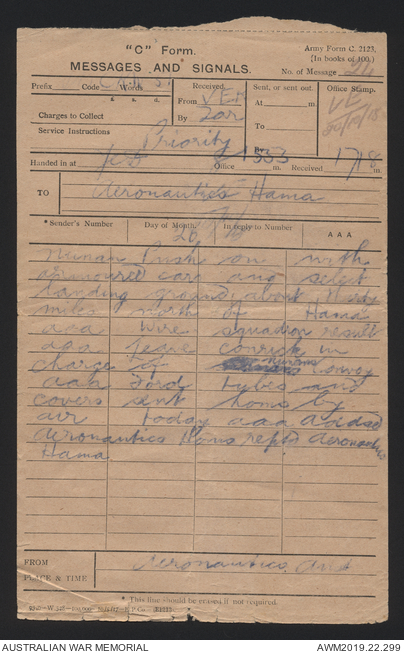 "C" Form.
MESSAGES AND SIGNALS.
Army Form C. 2123.
(In books of 100.)
No. of Message 26
Prefix Code Words
£ s. d.
Charges to Collect
Service Instructions
Priority
Received.
From VER
By
Sent, or sent out.
At m.
To
By
Office Stamp.
VE
Handed in at Office 1333 m. Received 1718 m.
TO Aeronautics Hama
*Sender's Number Day of Month In reply to Number AAA
26
Nunan Push on with
armoured cars and select
landing ground about thirty
miles north of Hama
aaa Wire squadron result
aaa Leave Conrick in
charge of Nunans convoy
aaa Ford tubes and
covers sent homs by
air today aaa added
Aeronautics Homs reptd Aeronautics
Hama
FROM Aeronautics
PLACE & TIME
* This line should be erased if not required.
AUSTRALIAN WAR MEMORIAL
AWM2019.22.299